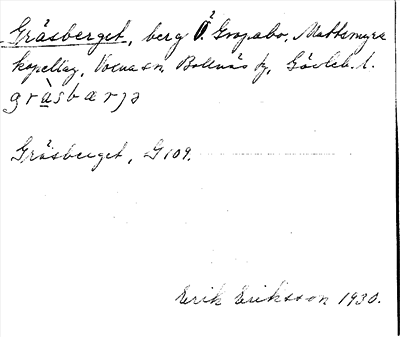 Gräsberget, berg Ö. Gropabo, Mattsmyra
kapellag, Voxna sn, Bollnäs tg, Gävleb. l.
gràsbærjə
Gräsberget, G 109.
Erik Eriksson 1930.